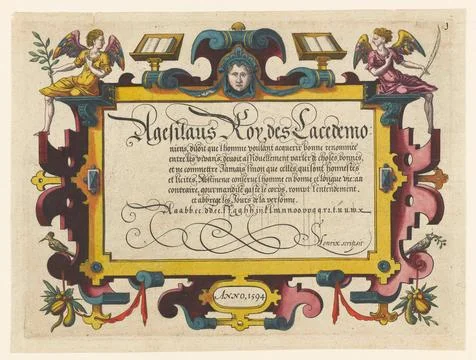 3
Agesilaus Roy des Lacedemo
niens, disoit que l'homme voulant acquerir bonne renommee
entre les vivans, devoit assiduellement parler de choses bonnes,
et ne commettre Jamais sinon que celles qui sont honnestes
et licites. Abstinence conserve l'homme en bonne et longue vie: au
contraire, gourmandise gaste le corps, rompt l'entendement,
et abbrege les Jours de la personne.
scripsit
ANNO, 1594